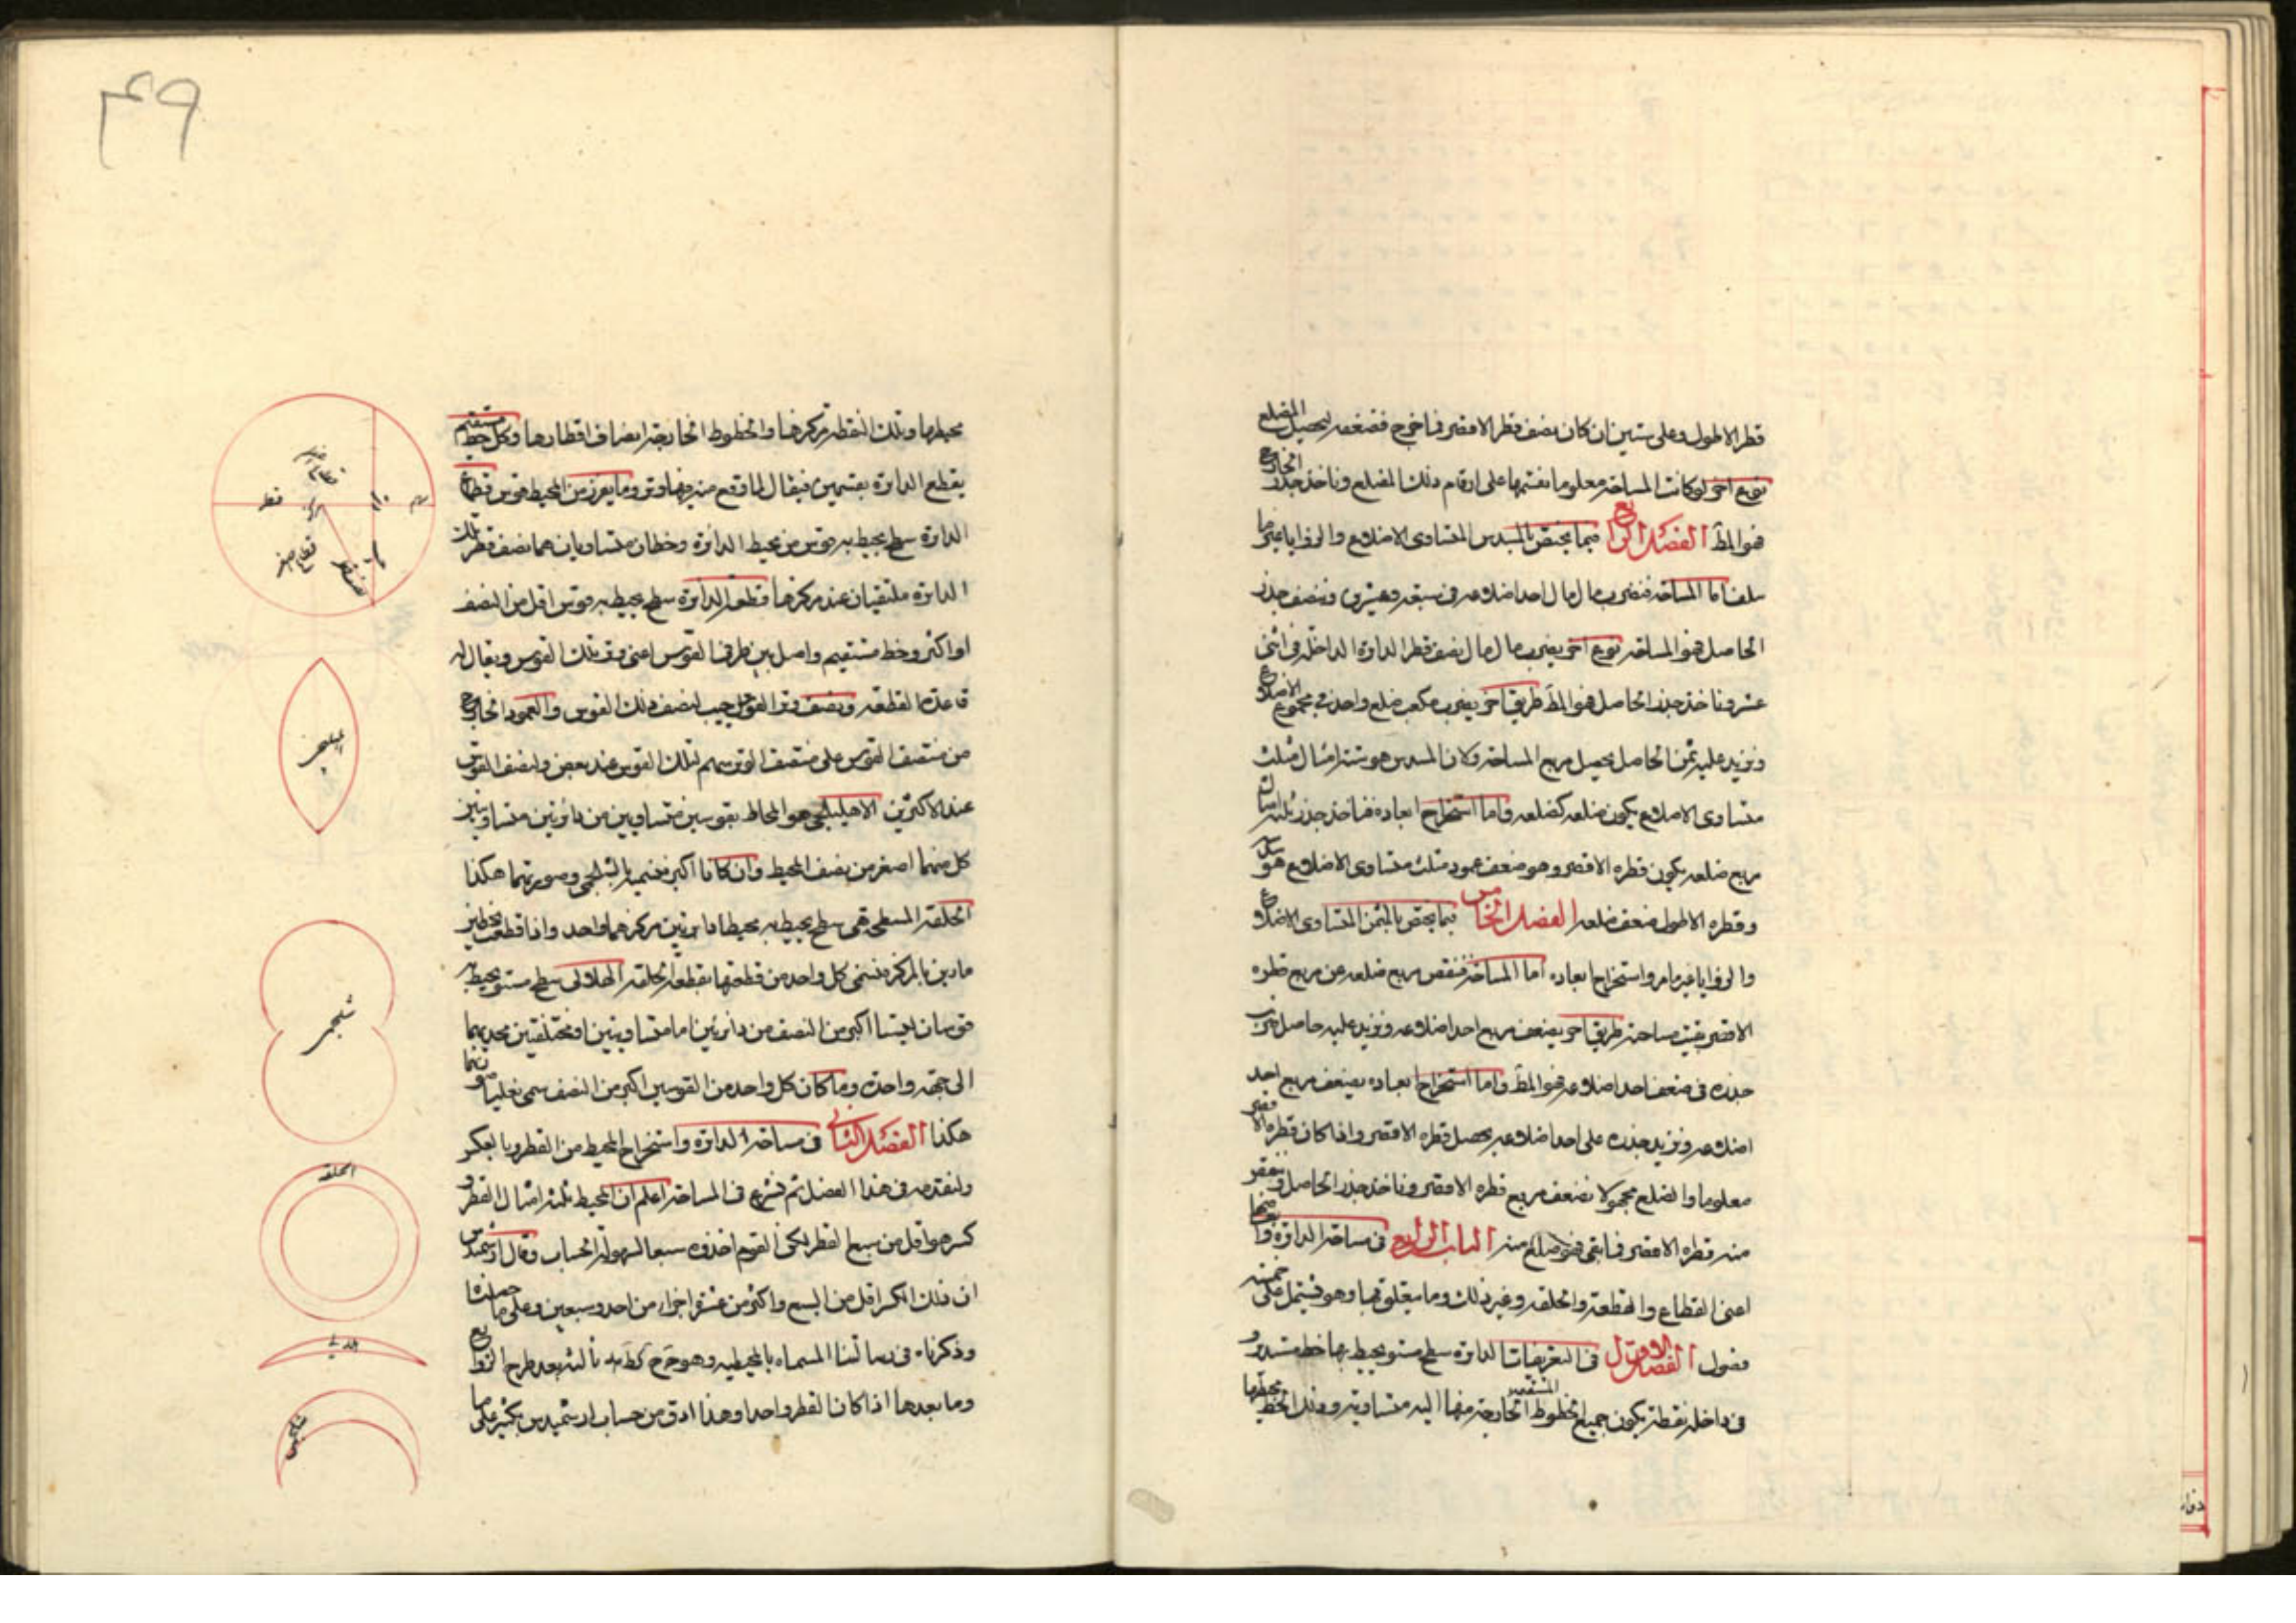 قطر الاطول وعلى ستين ان كان نصف قطر الاقصر فما خرج فنضعفه ليحصل الضلع
نوع آخر لو كانت المساحة معلوما نقسمها على ارقام ذلك المضلع وناخذ جذر الخارج
فهو المط الفصل الرابع فيما يختص بالمسدس المتساوى الاضلاع والزوايا غير ما
سلف اما المساحة فنضرب مال مال احد اضلاعه فى سبعة وعشرين ونصف جذر
الحاصل فهو المساحة نوع آخر يضرب مال مال نصف قطر الدايرة الداخلة فى اثنى
عشر وناخذ جذر الحاصل فهو المط طريق آخر يضرب مكعب ضلع واحد فى مجموع الاضلاع
ونزيد عليه ثمن الحاصل يحصل مربع المساحة ولان المسدس هو ستة امثال مثلث
متساوى الاضلاع يكون ضلعه كضلعه واما استخراج ابعاده فناخذ جذر ثلثة امثال
مربع ضلعه يكون قطره الاقصر وهو ضعف عمود مثلث متساوى الاضلاع هو
وقطره الاطول ضعف ضلعه الفصل الخامس فيما يختص بالمثمن المتساوى الاضلاع
والزوايا غير ما مر واستخراج ابعاده اما المساحة فننقص مربع ضلعه عن مربع قطره
الاقصر بقيت مساحته طريق آخر يضعف مربع احد اضلاعه ونزيد عليه حاصل ضرب
جذره فى ضعف احد اضلاعه فهو المط واما استخراج ابعاده يضعف مربع احد
اضلاعه ونزيد جذره على احد اضلاعه يحصل قطره الاقصر واذا كان قطره الاقصر
معلوما والضلع مجهولا نضعف مربع قطره الاقصر وناخذ جذر الحاصل وننقص
منه قطره الاقصر فما بقى فهو ضلع منه الباب الرابع فى مساحة الدائرة وابعاضها
اعنى القطاع والقطعة والحلقة وغير ذلك وما يتعلق بها وهو يشتمل على خمسة
فصول الفصل الاول فى التعريفات الدايرة سطح مستو يحيط بها خط مستدير و
فى داخله نقطة يكون جميع الخطوط المستقيمة الخارجة منها اليه متساوية وذلك الخط محيطها
۴۹
محيطها وتلك النقطة مركزها والخطوط الخارجة انصاف اقطارها وكل خط مستقيم
يقطع الدايرة بقسمين فيقال لما وقع منه فيها وتر وما يفرز من المحيط قوس قطاع
الدايرة سطح يحيط به قوس من محيط الدائرة وخطان متساويان هما نصف قطر تلك
الدايرة ملتقيان عند مركزها قطعة الدايرة سطح يحيط به قوس اقل من النصف
او اكثر وخط مستقيم واصل بين طرفى القوس اعنى وتر تلك القوس ويقال له
قاعدة القطعة ونصف وتر القوس جيب لنصف ذلك القوس والعمود الخارج
من منتصف القوس على منتصف الوتر سهم لتلك القوس عند بعض ولنصف القوس
عند الاكثرين الاهليلجى هو المحاط بقوسين متساويين من دائرتين متساويتين
كل منهما اصغر من نصف المحيط وان كانا اكبر فنسميه بالشلجمى وصورتهما هكذا
الحلقة المسطحى هى سطح يحيط به محيطا دايرتين مركزهما واحد واذا قطعت بخطين
مارين بالمركز فنسمى كل واحد من قطعتها بقطعة الحلقة الهلالى سطح مستو يحيط به
قوسان ليستا اكبر من النصف من دائرتين اما متساويتين او مختلفتين محدبهما
الى جهة واحدة وما كان كل واحد من القوسين اكبر من النصف سمى نعليا وصورتهما
هكذا الفصل الثانى فى مساحة الدائرة واستخراج المحيط من القطر وبالعكس
ولنقدمه فى هذا الفصل ثم نشرع فى المساحة اعلم ان المحيط ثلثة امثال القطر و
كسر هو اقل من سبع القطر لكن القوم اخذوه سبعا لسهولة الحساب وقال ارشميدس
ان ذلك الكسر اقل من السبع واكثر من عشرة اجزاء من احد وسبعين وعلى ما حصلناه
وذكرناه فى رسالتنا المسماه بالمحيطية وهو ج ح كط مد ثالثة بعد طرح الروابع
وما بعدها اذا كان القطر واحدا وهذا ادق من حساب ارشميدس بكثير على ما
قطر
مركز
سهم
وتر
قوس
نصف قطر
قطاع اصغر
اهليلجى
شلجمى
الحلقه
هلالى
نعلى